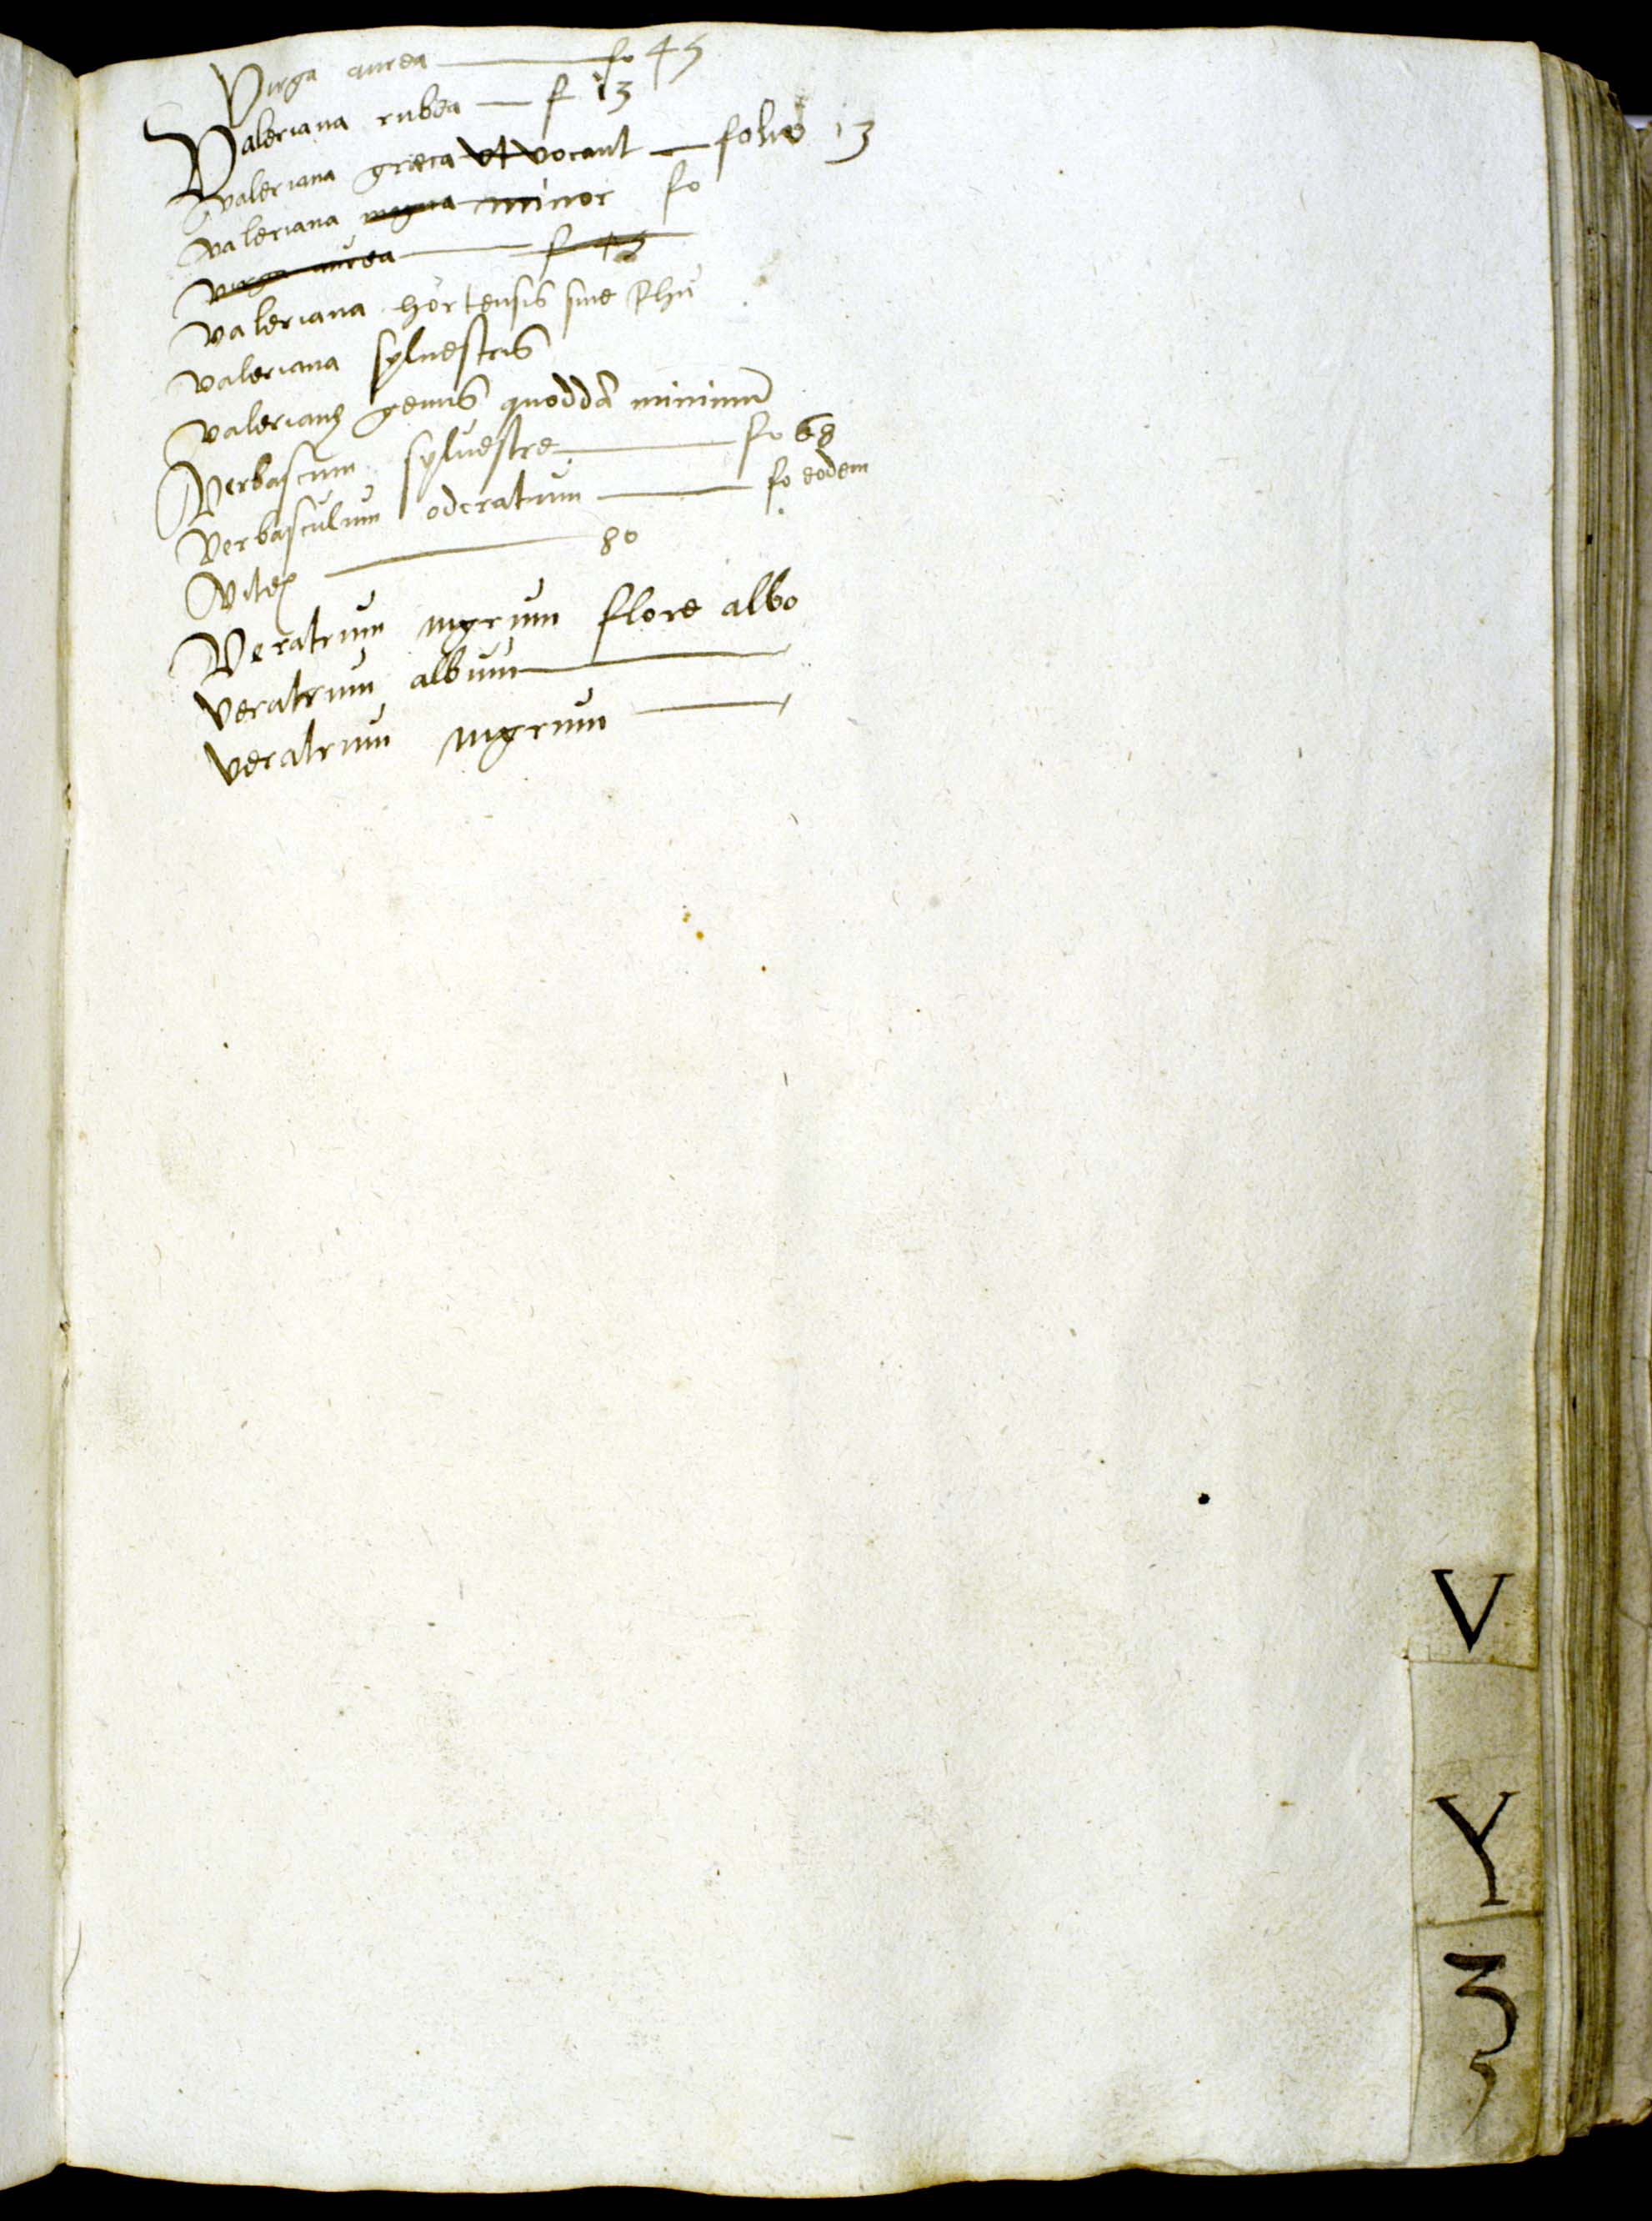 Virga aurea — fo 45
Valeriana rubea — f 13
Valeriana græca vt vocant — folio 13
valeriana magna minor fo
virga aurea — f 45
valeriana hortensis siue Phu
valeriana syluestris
valerianę genus quoddā minimū
Verbascum syluestre — fo 68
Verbasculum odoratum — fo eodem
Vitex — 80
Veratrum nigrum flore albo
Veratrum album —
veratrum nigrum —
V
Y
Z